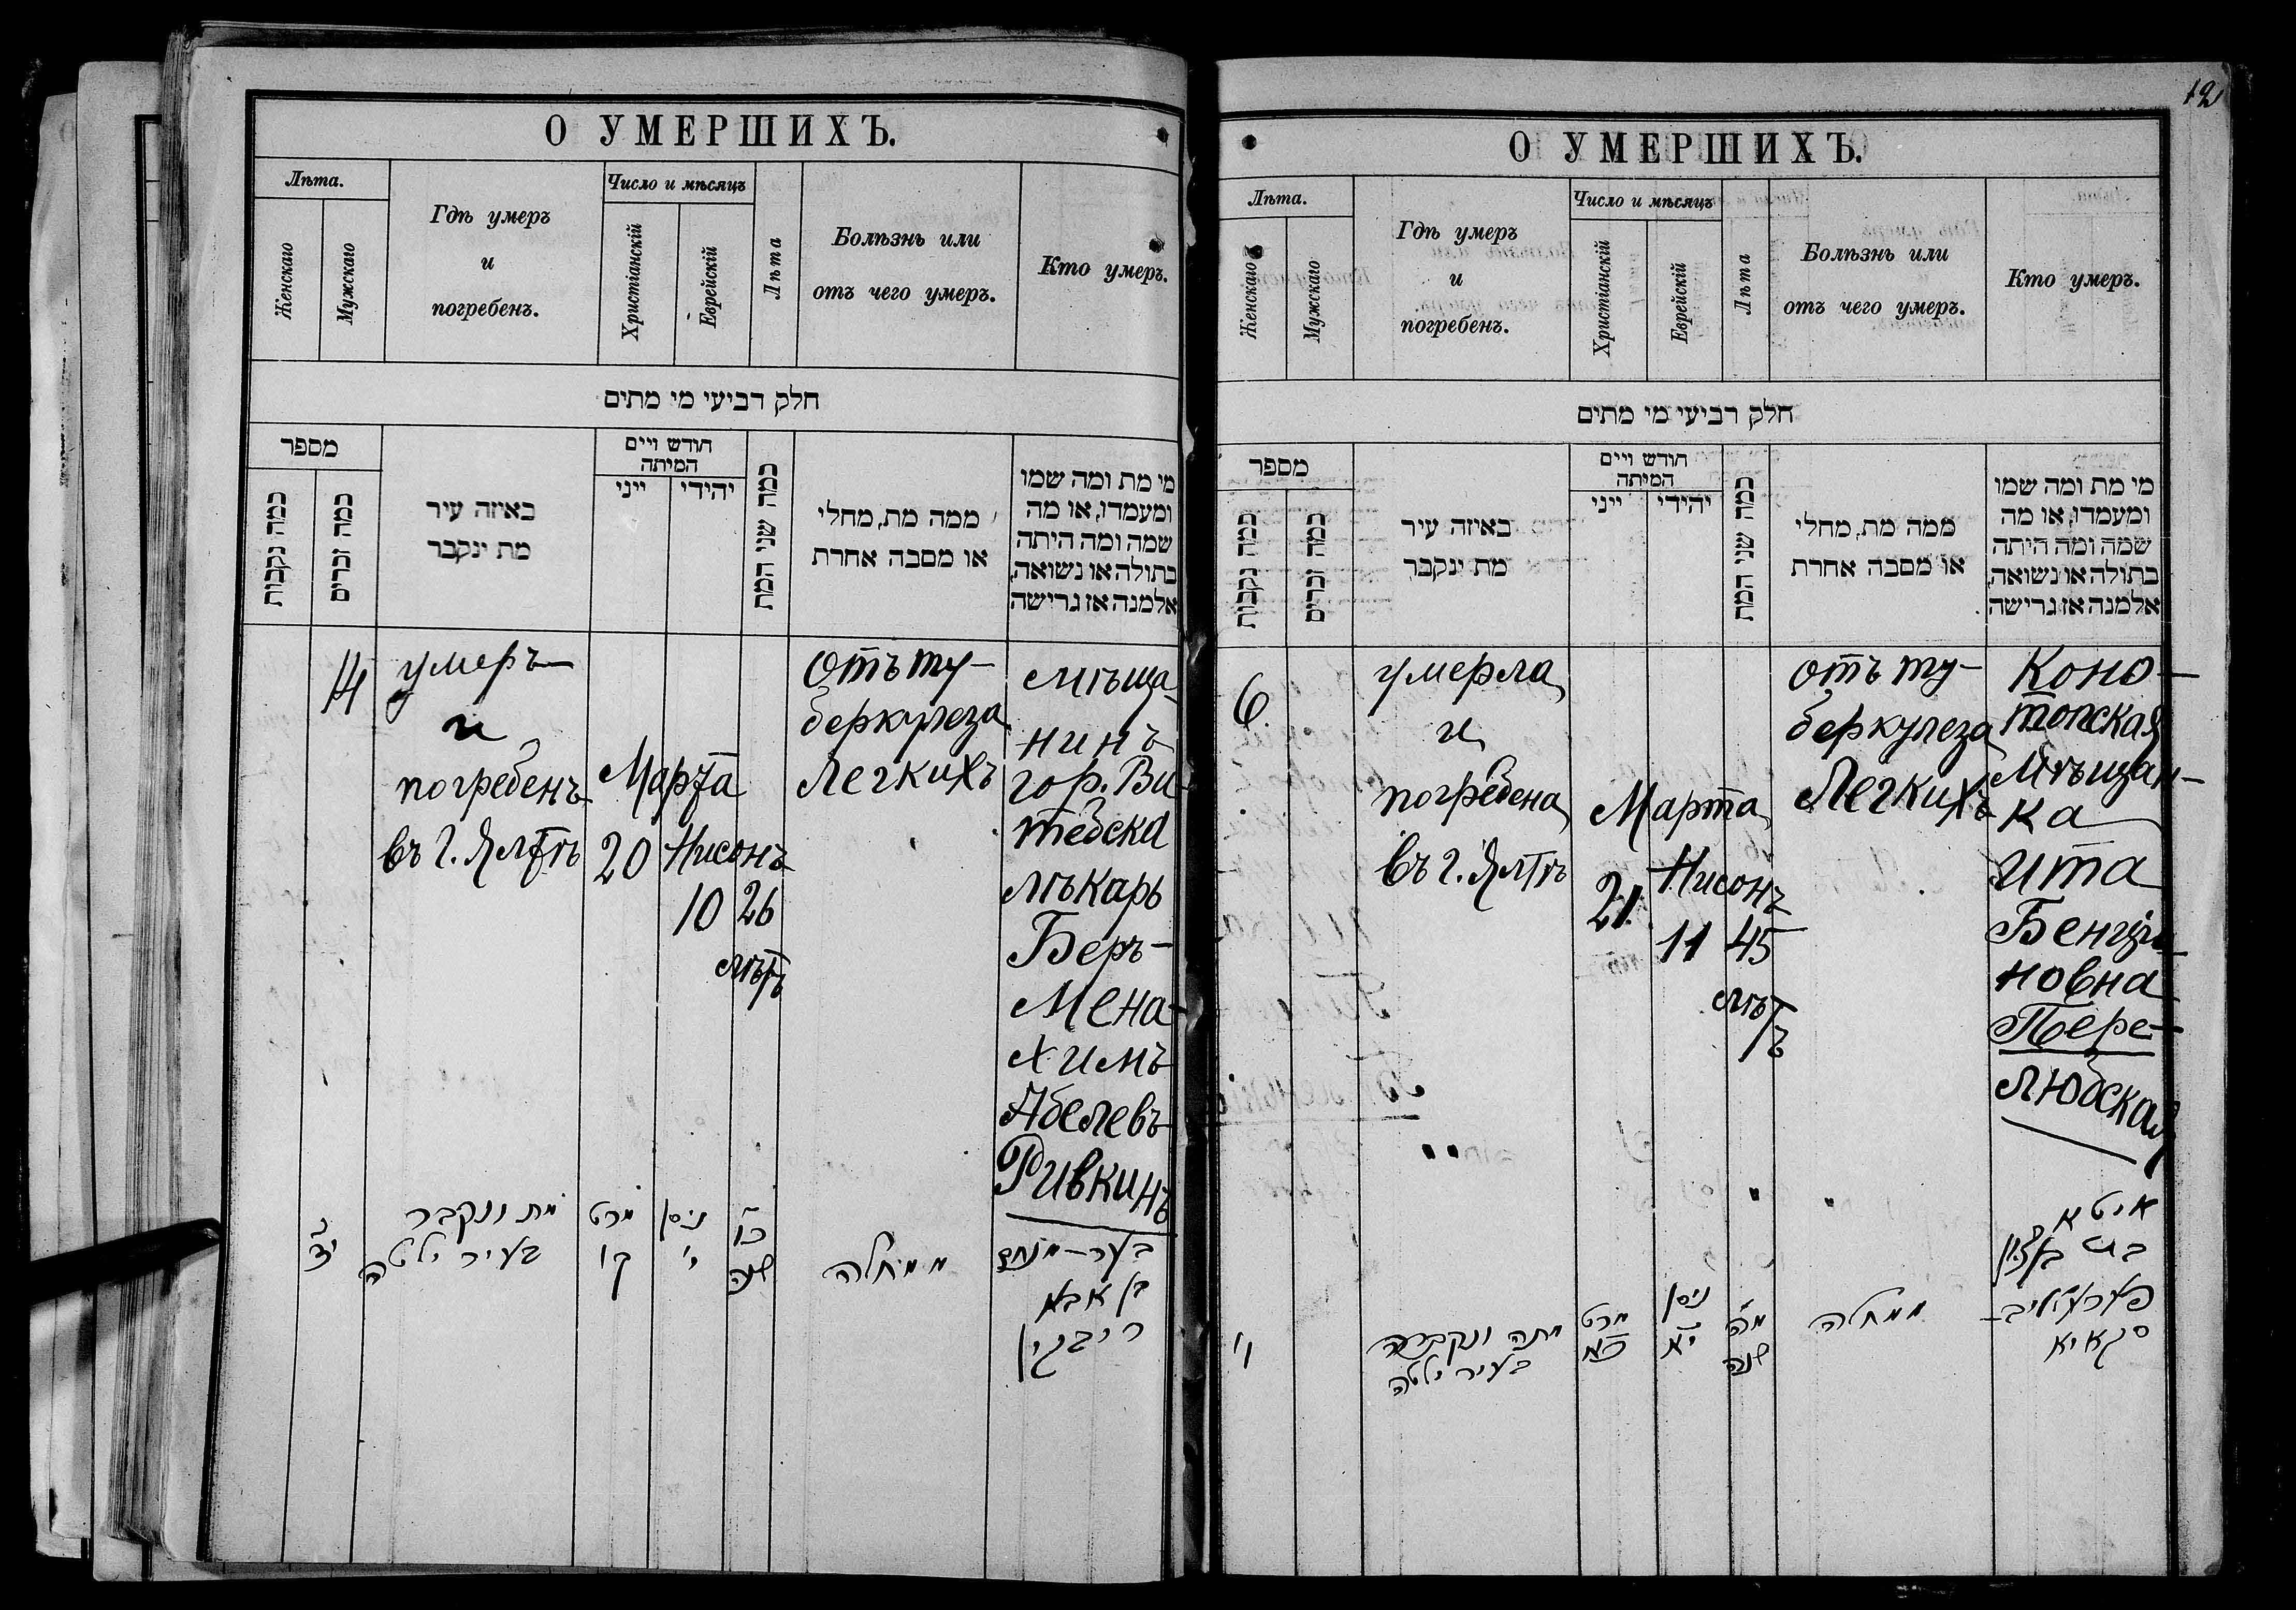 О УМЕРШИХЪ.
Лѣта.
Женскаго
Мужскаго
Гдѣ умеръ
и
погребенъ.
Число и мѣсяцъ
Христіанскій
Еврейскій
Лѣта
Болѣзнь или
отъ чего умеръ.
Кто умеръ.
חלק רביעי מי מתים
מספר
כמה נקבות
כמה זכרים
באיזה עיר
מת ינקבר
חודש ויים
המיתה
ייני
יהידי
כמה שני המת
ממה מת, מחלי
או מסבה אחרת
מי מת ומה שמו
ומעמדו, או מה
שמה ומה היתה
בתולה או נשואה,
אלמנה אז גרישה
14
умеръ
и
погребенъ
въ г. Ялтѣ
Марта
20
Нисонъ
10
26
лѣтъ
Отъ ту-
беркулеза
легкихъ
Мѣща-
нинъ
гор. Ви-
тебска
лѣкарь
Беръ-
Мена-
химъ
Абелевъ
Ривкинъ
מת ונקבר
בעיר ילטה
מרט
ניסן
י
כו
שנה
ממחלה
בער-מנחם
בן אבא
ריבקין
12
О УМЕРШИХЪ.
Лѣта.
Женскаго
Мужскаго
Гдѣ умеръ
и
погребенъ.
Число и мѣсяцъ
Христіанскій
Еврейскій
Лѣта
Болѣзнь или
отъ чего умеръ.
Кто умеръ.
חלק רביעי מי מתים
מספר
כמה נקבות
כמה זכרים
באיזה עיר
מת ינקבר
חודש ויים
המיתה
ייני
יהידי
כמה שני המת
ממה מת, מחלי
או מסבה אחרת
מי מת ומה שמו
ומעמדו, או מה
שמה ומה היתה
בתולה או נשואה,
אלמנה אז גרישה
6.
умерла
и
погребена
въ г. Ялтѣ
Марта
21
Нисонъ
11
45
лѣтъ
отъ ту-
беркулеза
легкихъ
Коно-
топская
Мѣщан-
ка
Ита
Бенціо-
новна
Пере-
любская
ו'
מתה ונקברה
בעיר ילטה
מרט
כא
ניסן
יא
מה
שנה
ממחלה
איטא
בת בן ציון
פערעליוב-
סקאיא